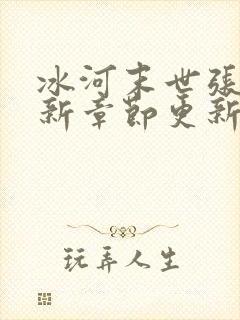 冰河末世張
新章節更新
玩弄人生